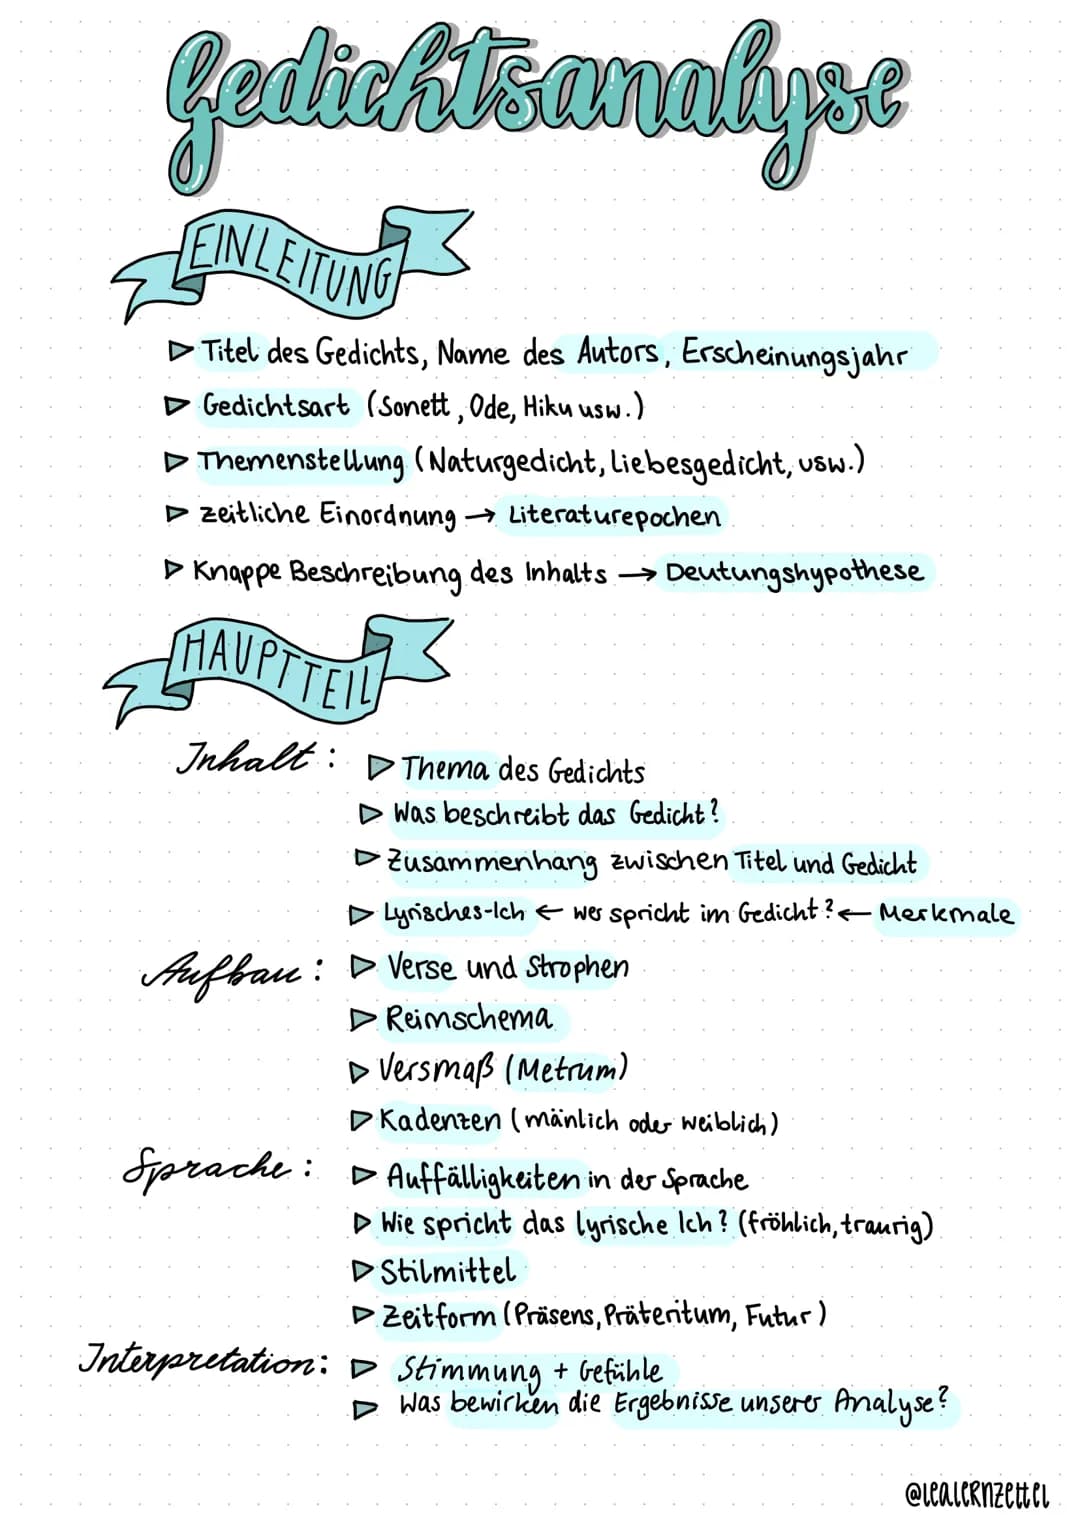 Gedichtsanalyse
EINLEITUNG
Titel des Gedichts, Name des Autors, Erscheinungsjahr
Gedichtsart (Sonett, Ode, Hiku usw.)
Themenstellung (Naturgedicht, Liebesgedicht, usw.)
zeitliche Einordnung → Literaturepochen
Knappe Beschreibung des Inhalts → Deutungshypothese
HAUPTTEIL
Inhalt: Thema des Gedichts
Was beschreibt das Gedicht?
Zusammenhang zwischen Titel und Gedicht
Lyrisches-Ich ← wer spricht im Gedicht? ← Merkmale
Aufbau: Verse und Strophen
Reimschema
Versmaß (Metrum)
Kadenzen (mänlich oder weiblich)
Sprache: Auffälligkeiten in der Sprache
Wie spricht das lyrische Ich? (fröhlich, traurig)
Stilmittel
Zeitform (Präsens, Präteritum, Futur)
Interpretation: Stimmung + Gefühle
Was bewirken die Ergebnisse unserer Analyse?
@lealernzettel